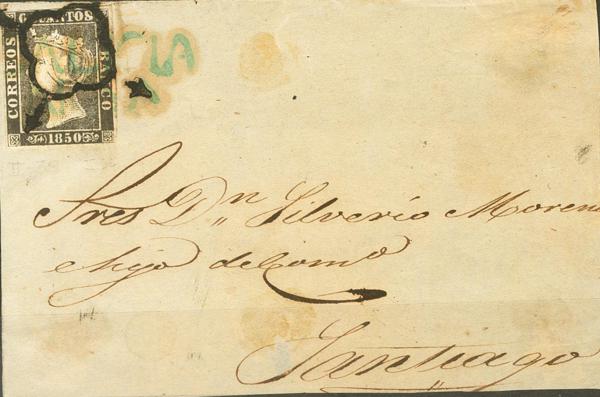 CORREOS
CUARTOS
FRANCO
1850
Sres Dn Silverio Moreno
é hijo del Com°
Santiago